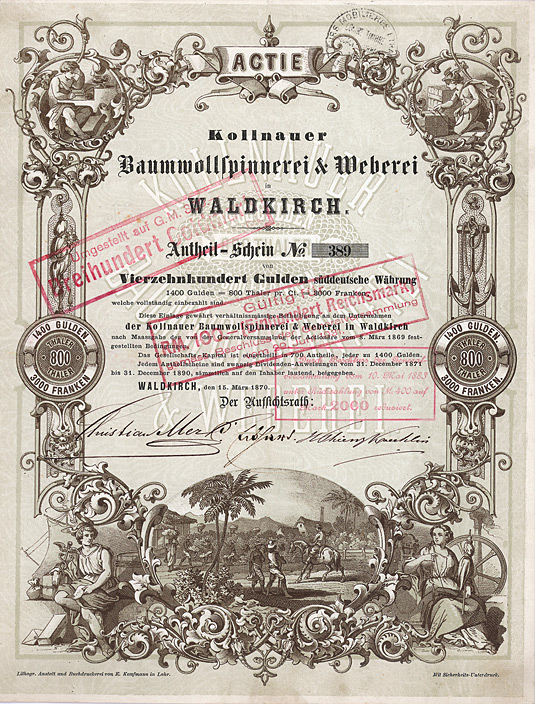 ACTIE
Kollnauer
Baumwollspinnerei & Weberei
in
WALDKIRCH.
Antheil-Schein No. 389
von
Vierzehnhundert Gulden süddeutsche Währung
1400 Gulden = 800 Thaler pr. Ct. = 3000 Franken
welche vollständig einbezahlt sind.
Diese Einlage gewährt verhältnissmässige Betheiligung an dem Unternehmen
der Kollnauer Baumwollspinnerei & Weberei in Waldkirch
nach Maassgabe der von der Generalversammlung der Actionäre vom 8. März 1869 fest-
gestellten Bedingungen.
Das Gesellschafts-Kapital ist eingetheilt in 700 Antheile, jeder zu 1400 Gulden.
Jedem Antheilscheine sind zwanzig Dividenden-Anweisungen vom 31. December 1871
bis 31. December 1890, sämmtlich auf den Inhaber lautend, beigegeben.
WALDKIRCH, den 15. März 1870.
Der Aufsichtsrath:
Umgestellt auf G.M.
Dreihundert
Gültig für
Reichsmark
Versammlung vom 10. Mai 1883
unter Rückzahlung von M. 400 auf
Mark 2000 reducirt.
1400 GULDEN.
THALER
800
THALER
3000 FRANKEN.
1400 GULDEN.
THALER
800
THALER
3000 FRANKEN.
KOLLNAUER
WEBEREI
Lithogr. Anstalt und Buchdruckerei von E. Kaufmann in Lahr.
Mit Sicherheits-Unterdruck.